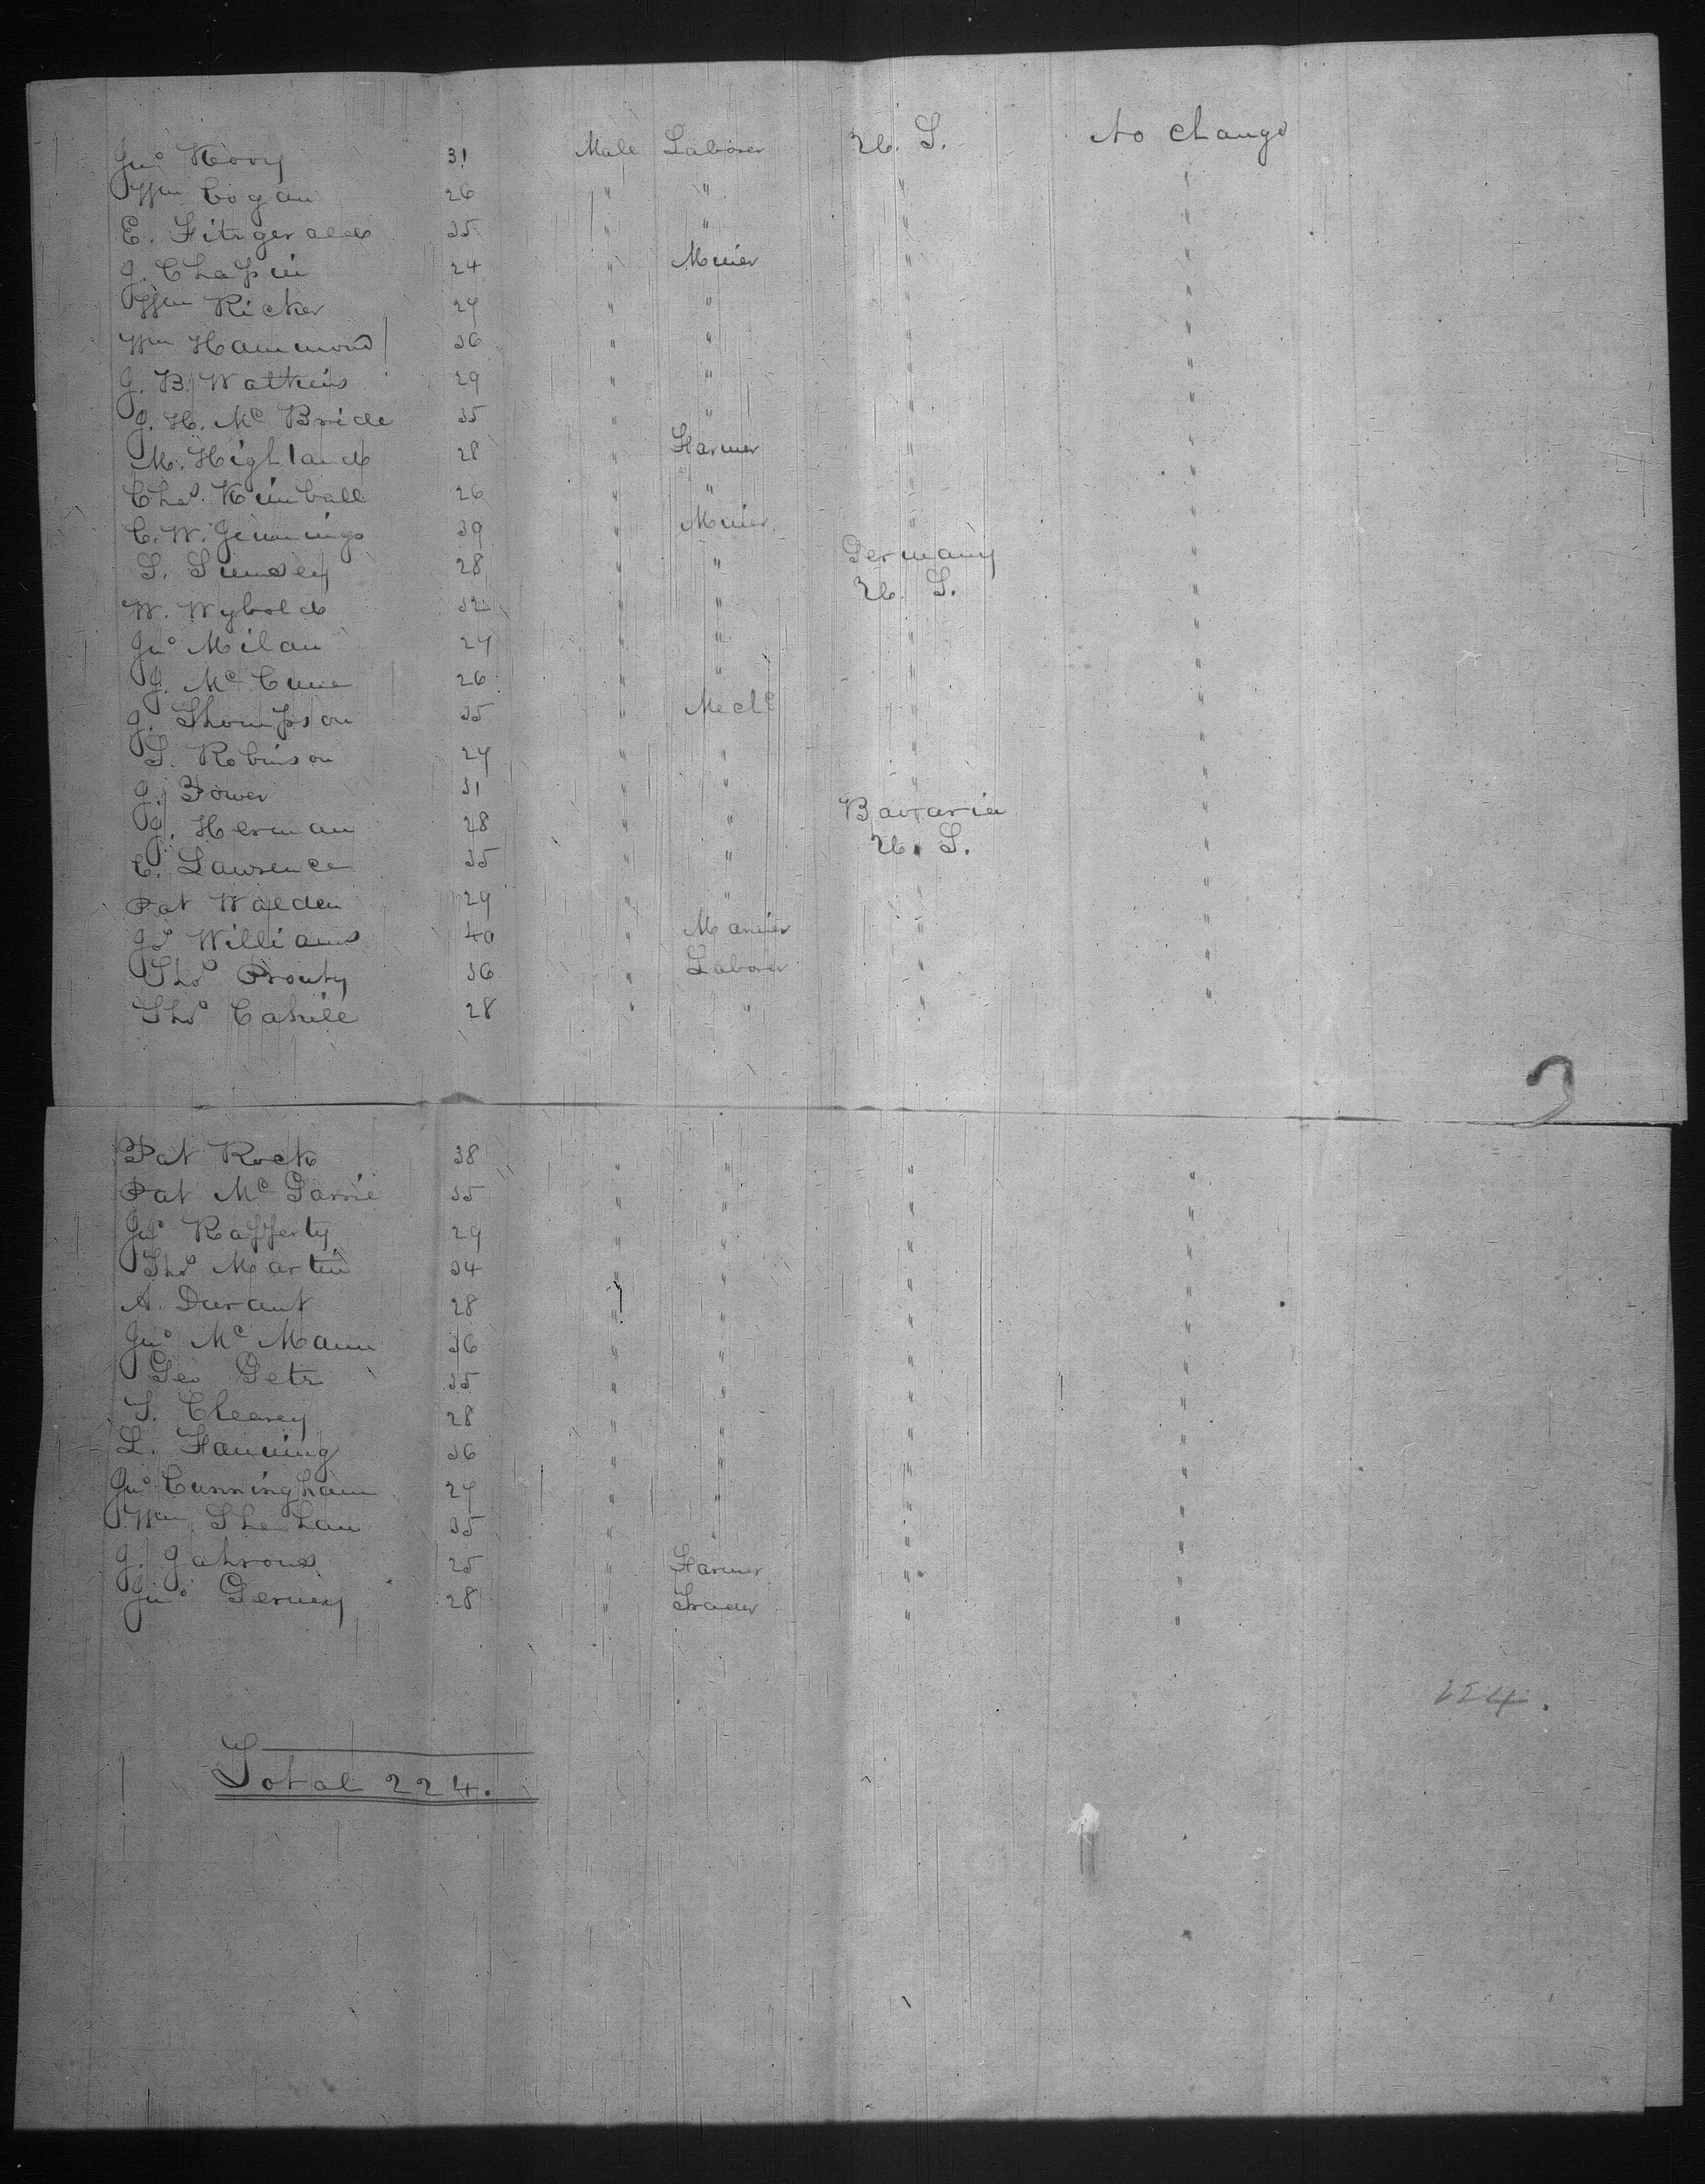 Jno Kory 31 Male Laborer U. S. No Change
Wm Cogan 26 " " " "
E. Fitzgerald 35 " " " "
J. Chapin 24 " Miner " "
Wm Ricker 27 " " " "
Wm Hammond 36 " " " "
J. B. Watkins 29 " " " "
J. H. McBride 35 " " " "
M. Highland 28 " Farmer " "
Chas. Kimball 26 " " " "
C. W. Jennings 39 " Miner " "
S. 28 " " Germany "
W. Wybold 32 " " U. S. "
Jno Milan 27 " " " "
J. McCune 26 " " " "
J. Thompson 35 " Mechc " "
S. Robinson 27 " " " "
J. Power 31 " " " "
J. Herman 28 " " Bavaria "
C. Lawrence 35 " " U. S. "
Pat Walden 29 " " " "
Jos Williams 40 " Mariner " "
Thos Prouty 36 " Laborer " "
Thos Cahill 28 " " " "
2
Pat Rock 38 " " " "
Pat McGarrie 35 " " " "
Jno Rafferty 29 " " " "
Thos Martin 34 " " " "
A. Durant 28 " " " "
Jno McMann 36 " " " "
Geo Getz 35 " " " "
T. Clearey 28 " " " "
L. Fanning 36 " " " "
Jno Cunningham 27 " " " "
Wm Shehan 35 " " " "
J. 25 " Farmer " "
Jno 28 " Trader " "
224.
Total 224.